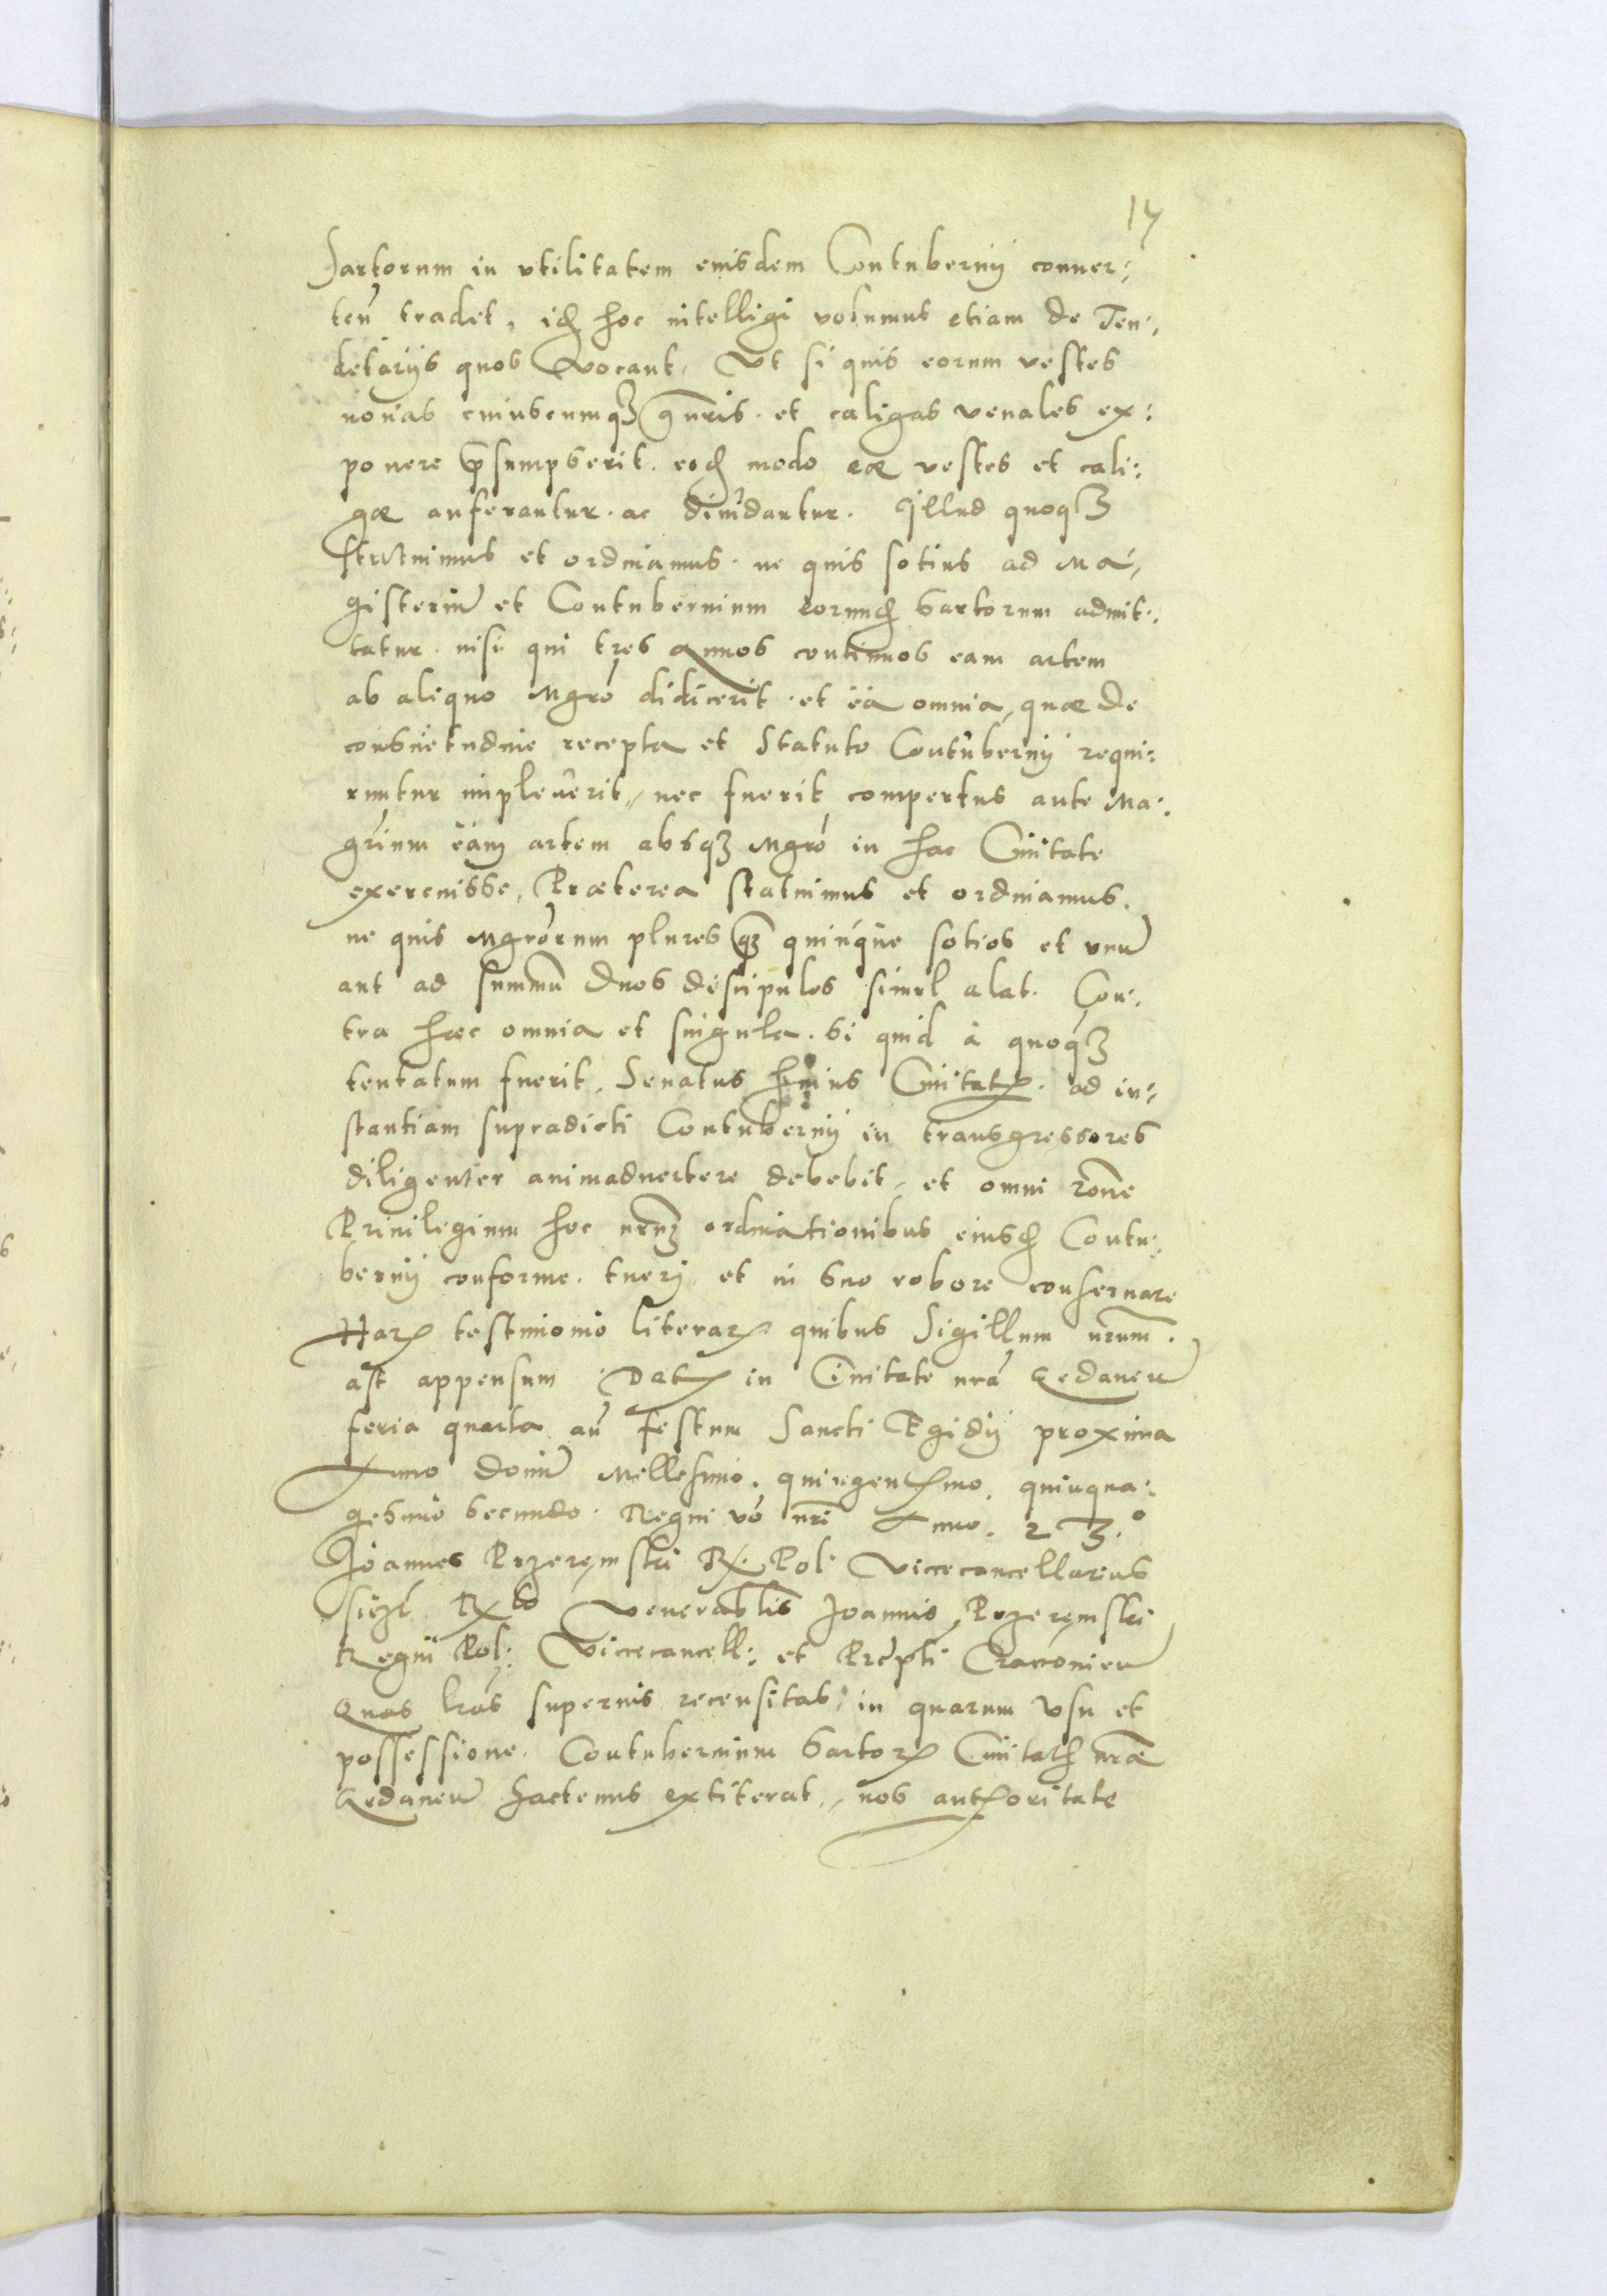 14
Sartorum in vtilitatem eiusdem Contubernij conuer:
ten̄ tradet, idꝫ hoc intelligi volumus etiam de Ten:
detarijs quos Vocant, Vt si quis eorum vestes
nouas cuiuscumqꝫ gn̄ris et caligas venales ex:
ponere p̄sumpserit. eodꝫ modo eæ vestes et cali:
gæ auferantur. ac diuidantur. Illud quoqꝫ
statuimus et ordinamus. ne quis sotius ad Ma,
gisteriū et Contubernium eorundꝫ sartorum admit:
tatur. nisi qui tres annos continuos eam artem
ab aliquo Mgro didicerit. et ea omnia, quæ de
consuetudine recepta et Statuto Contubernij requi:
runtur impleuerit, nec fuerit compertus ante Ma:
grium eam artem absqꝫ Mgro in hac Ciuitate
exercuisse, Præterea statuimus et ordinamus.
ne quis Mgrorum plures qꝫ quinque sotios et vnū
aut ad summū duos discipulos simul alat. Con:
tra hæc omnia et singula. si quid à quoqꝫ
tentatum fuerit, Senatus huius Ciuitatꝭ. ad in:
stantiam supradicti Contubernij in transgressores
diligenter animaduertere debebit, et omni rōne
Priuilegium hoc nr̄m ordinationibus eiusdꝫ Contu:
bernij conforme. tueri, et in suo robore conseruare
Harꝝ testimonio literarꝝ quibus Sigillum nrum̄.
ast appensum Datꝭ in Ciuitate nrā Gedaneñ
feria quarta añ festum Sancti Egidij proxima
Anno domī Millesimo. quingentꝭmo. quinqua:
gesimo secundo. Regni vō nr̄i Anno. 23.°
Joannes Przeręmski R. Pol: Vicecancellarius
sszt. Rlo Venerablis Joannis Przeręmski
Regni Pol: Vicecancell: et Prēpti Cracouieñ
Quas lras supernis recensitas, in quarum vsu et
possessione. Contubernium Sartorꝝ Ciuitatꝭ nræ
Gedaneñ hactenus extiterat, nos authoritate